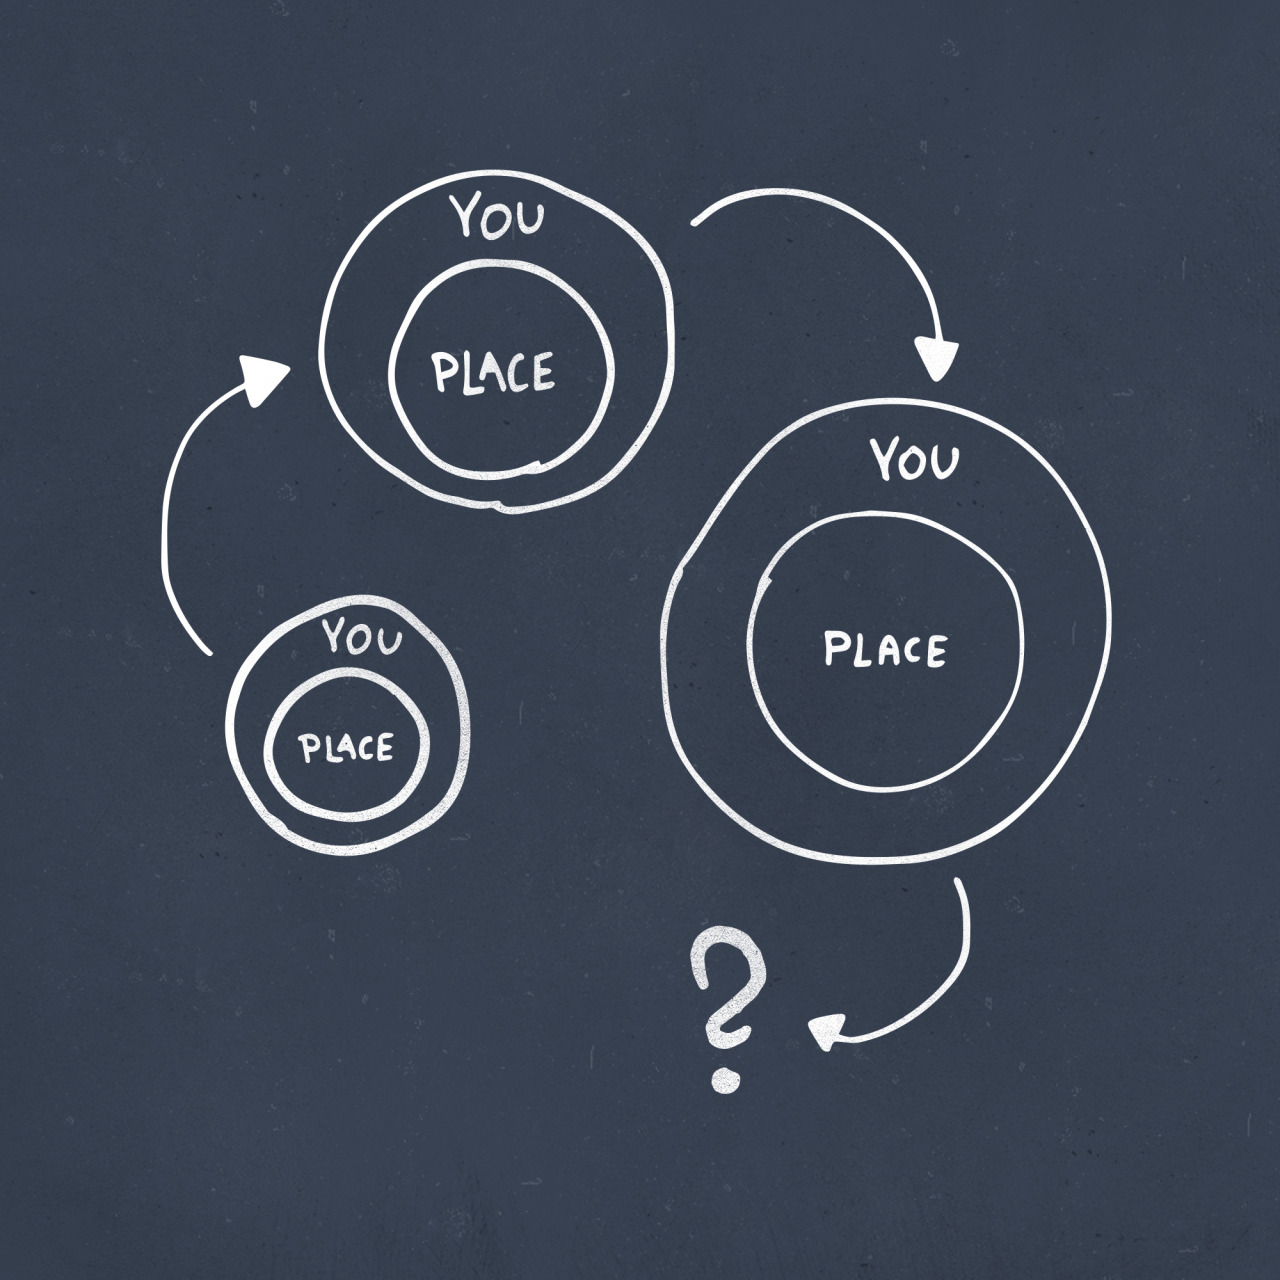 YOU
PLACE
YOU
PLACE
YOU
PLACE
?